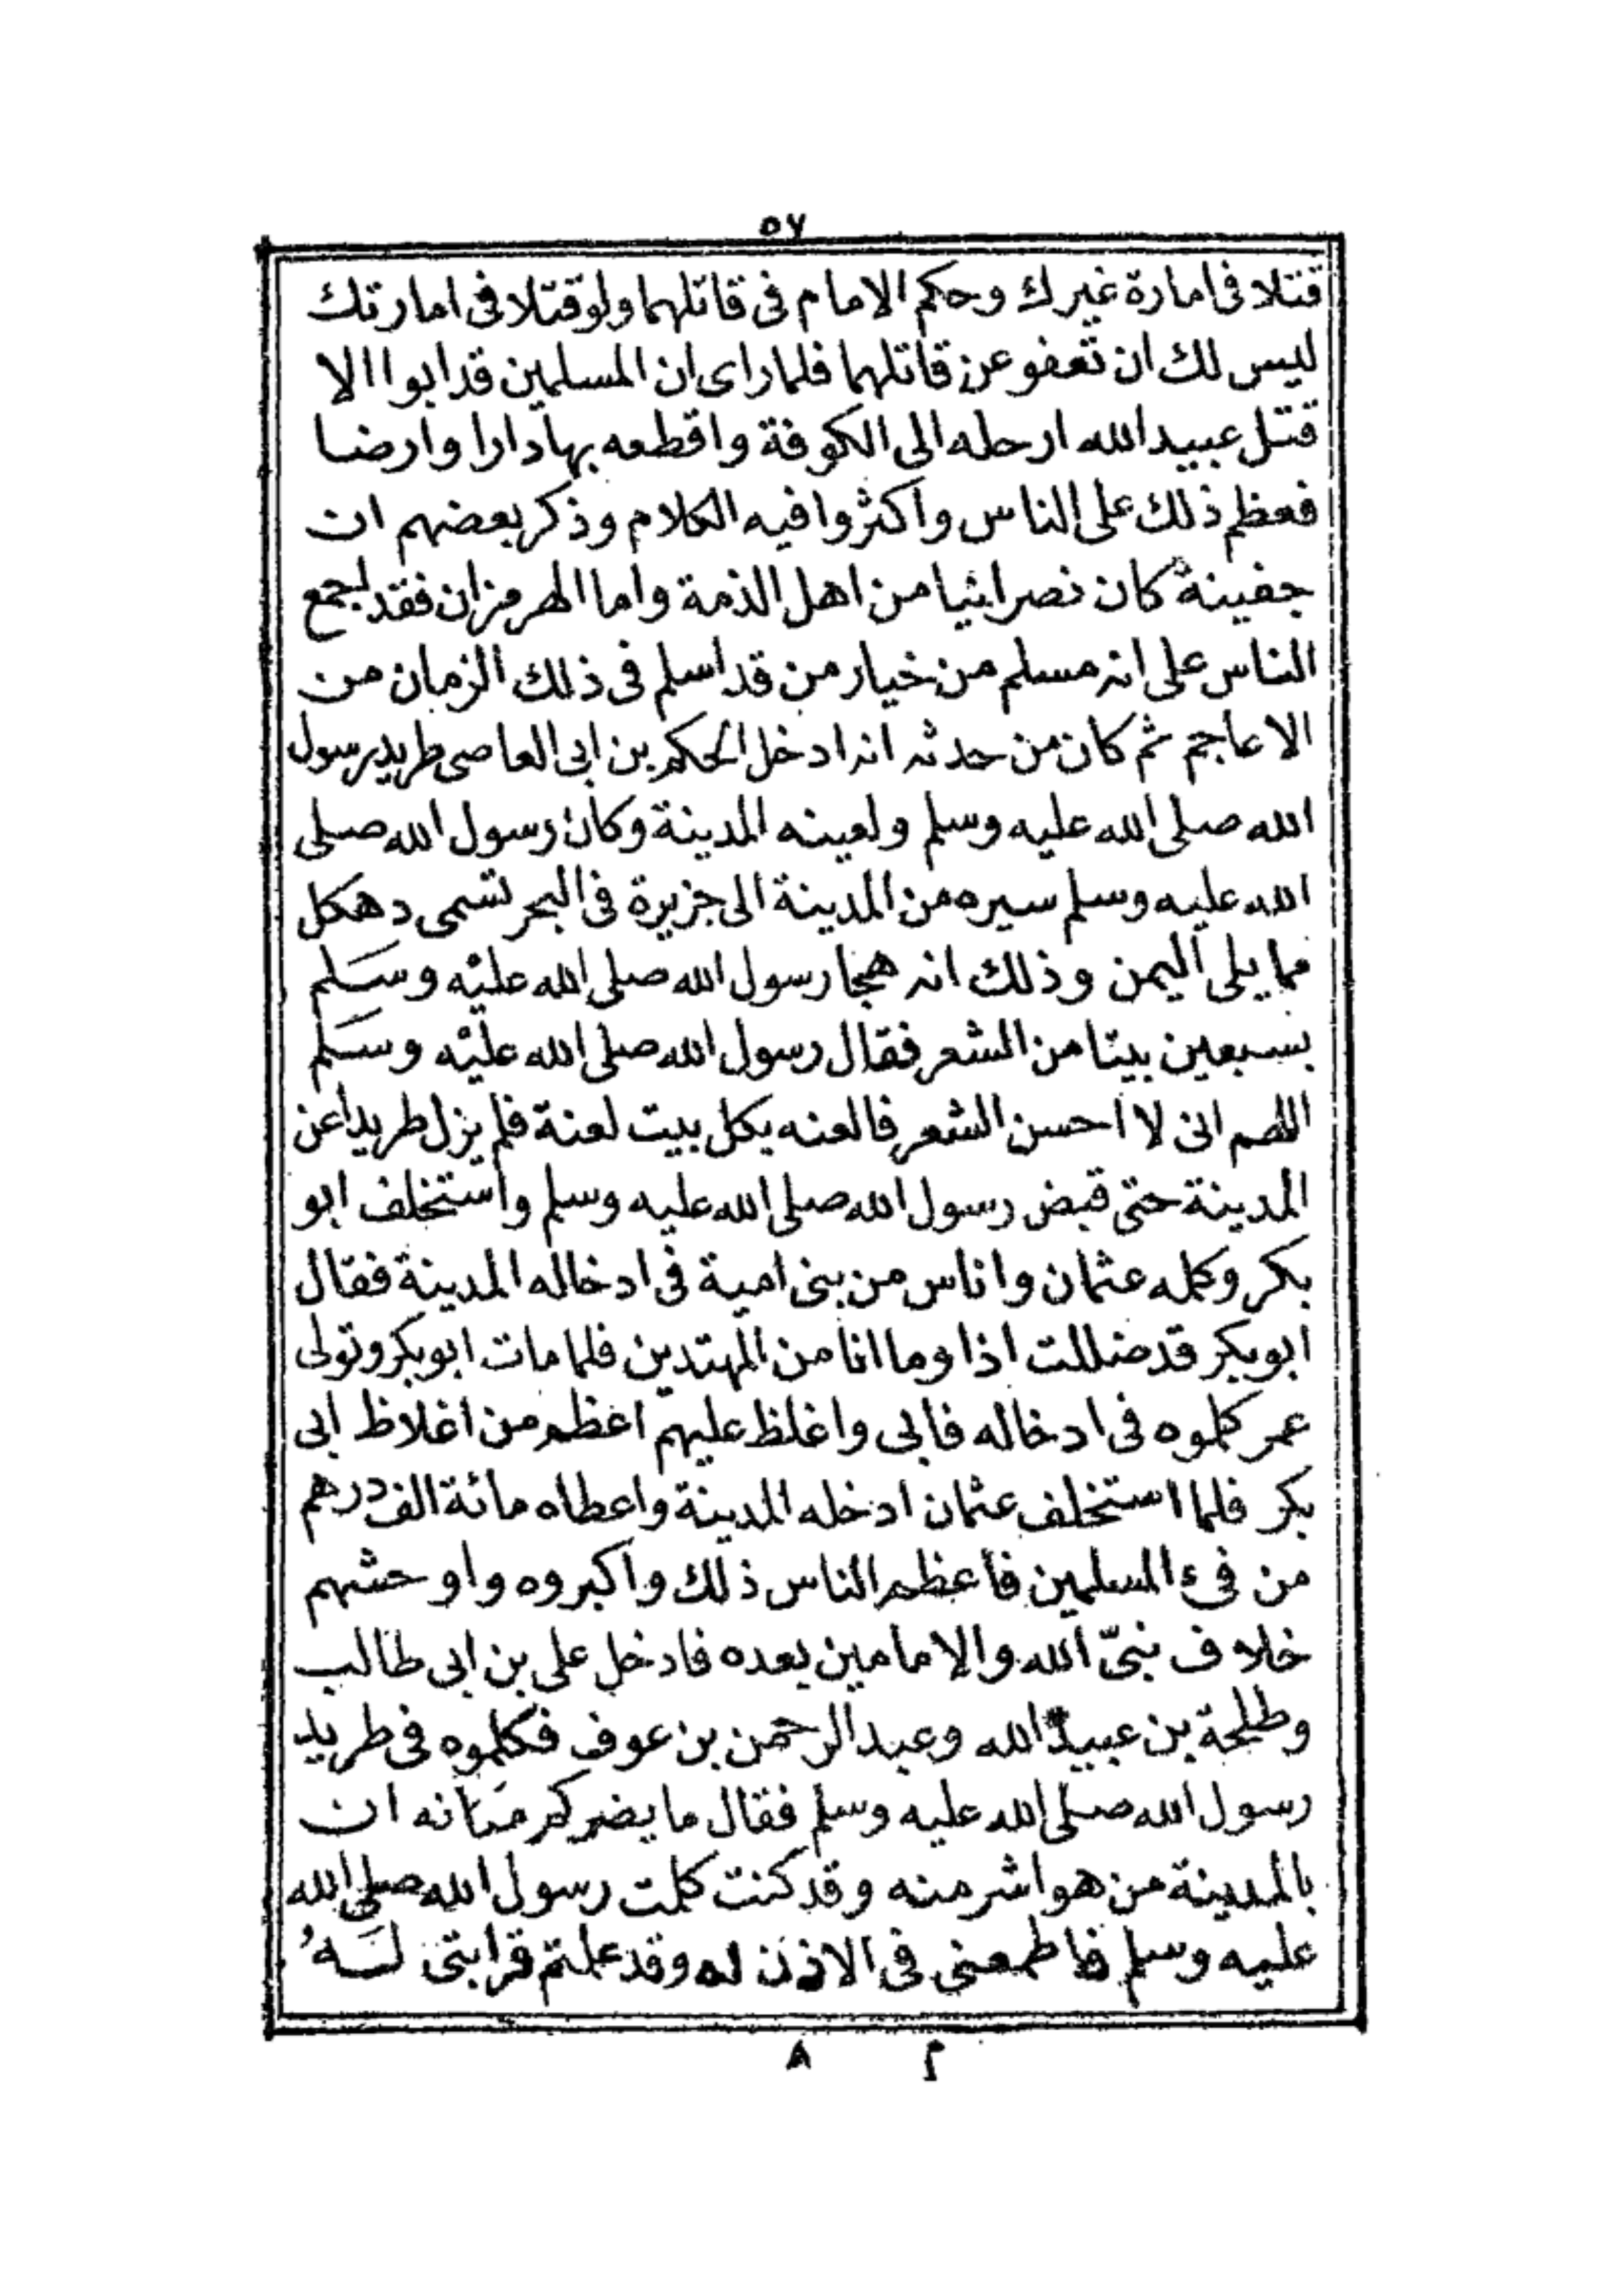 ٥٧
قتلا فى امارة غيرك وحكم الامام فى قاتلهما ولو قتلا فى امارتك
ليس لك ان تعفو عن قاتلهما فلما راى ان المسلمين قد ابوا الا
قتل عبيد الله ارحله الى الكوفة واقطعه بها دارا وارضا
فعظم ذلك على الناس واكثروا فيه الكلام وذكر بعضهم ان
جفينة كان نصرانيا من اهل الذمة واما الهرمزان فقد اجمع
الناس على انه مسلم من خيار من قد اسلم فى ذلك الزمان من
الاعاجم ثم كان من حدثه انه ادخل الحكم بن ابى العاصى طريد رسول
الله صلى الله عليه وسلم ولعينه المدينة وكان رسول الله صلى
الله عليه وسلم سيره من المدينة الى جزيرة فى البحر تسمى دهكل
مما يلى اليمن وذلك انه هجا رسول الله صلى الله عليْه وسَلم
بسبعين بيتا من الشعر فقال رسول الله صلى الله عليْه وسَلم
اللهم انى لا احسن الشعر فالعنه بكل بيت لعنة فلم يزل طريدا عن
المدينة حتى قبض رسول الله صلى الله عليه وسلم واستخلف ابو
بكر وكلمه عثمان واناس من بنى امية فى ادخاله المدينة فقال
ابو بكر قد ضللت اذا وما انا من المهتدين فلما مات ابو بكر وتولى
عمر كلموه فى ادخاله فابى واغلظ عليهم اعظم من اغلاظ ابى
بكر فلما استخلف عثمان ادخله المدينة واعطاه مائة الف درهم
من فىء المسلمين فأعظم الناس ذلك واكبروه واوحشهم
خلاف نبىّ الله والامامين بعده فادخل على بن ابى طالب
وطلحة بن عبيد الله وعبد الرحمن بن عوف فكلموه فى طريد
رسول الله صلى الله عليه وسلم فقال ما يضركم مكانه ان
بالمدينة من هو اشر منه وقد كنت كلمت رسول الله صلى الله
عليه وسلم فاطمعنى فى الاذن له وقد علمتم قرابتى لَهُ
م ٨